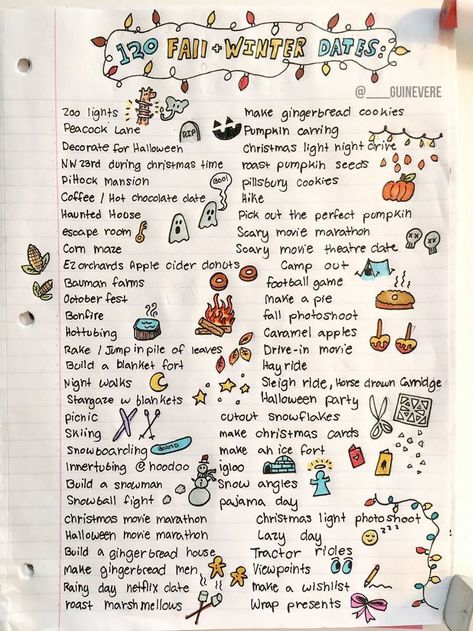 120 FALL + WINTER DATES:
@____GUINEVERE
Zoo lights
Peacock Lane
Decorate for Halloween
NW 23rd during christmas time
Pittock mansion
Coffee / Hot chocolate date
Haunted House
escape room
Corn maze
EZ orchards Apple cider donuts
Bauman farms
October fest
Bonfire
Hottubing
Rake / Jump in pile of leaves
Build a blanket fort
Night walks
Stargaze w blankets
picnic
Skiing
Snowboarding
Innertubing @ hoodoo
Build a snowman
Snowball fight
christmas movie marathon
Halloween movie marathon
Build a gingerbread house
make gingerbread men
Rainy day netflix date
roast marshmellows
RIP
BOO!
BOARD
make gingerbread cookies
Pumpkin carving
Christmas light night drive
roast pumpkin seeds
pillsbury cookies
Hike
Pick out the perfect pumpkin
Scary movie marathon
Scary movie theatre date
Camp out
football game
Make a pie
fall photoshoot
Caramel apples
Drive-in movie
Hay ride
Sleigh ride, Horse drawn Carridge
Halloween party
cutout snowflakes
make christmas cards
make an ice fort
igloo
Snow angles
pajama day
christmas light photoshoot
Lazy day
zzz
Tractor rides
Viewpoints
make a wishlist
Wrap presents